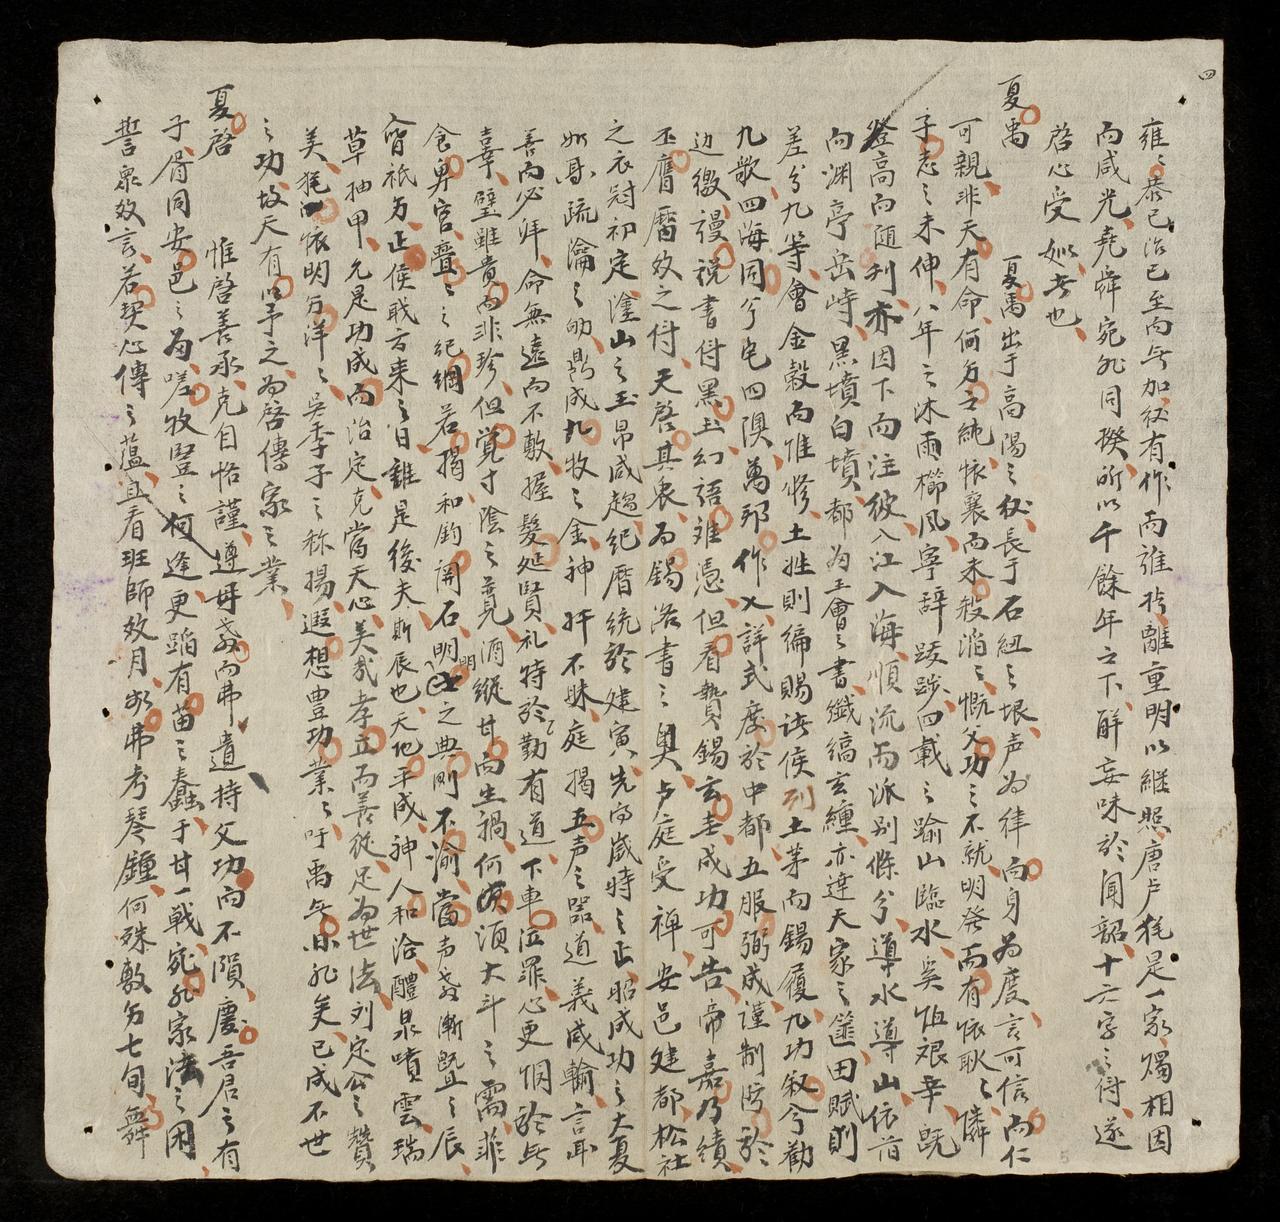 四
雍雍恭己治已至而無加紋有作而誰於離重明以繼照唐戶猶是一家燭相因
而咸光堯舜宛如同揆所以千餘年之下鮮妄味於聞韶十六字之付遂
啓心受姒者也
夏禹 夏禹出于高陽之紋長于石紐之垠声為律而身為度言可信而仁
可親非天有命何乃之純懷襄而未殺滔滔慨父功之不就明發而有依耿耿憐
子志之未伸八年之沐雨櫛風寧辭跋涉四載之踰山臨水奚恒艱辛既
登高而随刋亦因下而注彼入江入海順流而派別條分導水導山依前
向渊亭岳峙黑墳白墳都為王會之書纖縞玄纁亦達天家之篚田賦則
差分九等會金穀而惟修土姓則編賜諸侯列土茅而錫履九功叙兮勸
九歌四海同兮宅四隩萬邦作乂詳式度於中都五服弼成謹制防於
边徼謾説書付黑玉幻語难憑但看贄錫玄圭成功可告帝嘉乃績
丕膺曆数之付天啓其衷為錫洛書之奥占庭受禅安邑建都松社
之衣冠初定塗山之玉帛咸趨紀曆統於建寅先向歲時之正昭成功之大夏
斯爲疏瀹之劬鼎成九牧之金神奸不昧庭揭五声之器道義咸輸言耳
善而必拜命無遠而不敷握髮延賢礼特於勤有道下車泣罪心更惻於无
辜璧雖貴而非珍但覚寸陰之競酒縱甘而生禍何須大斗之需菲
食卑官亹亹之紀綱若揭和鈞関石明明之典則不渝當声教漸曁之辰
會祗方正侯戢方来之日誰是後夫斯辰也天地平成神人和洽醴泉噴雲瑞
草抽甲允是功成而治定克當天心美哉孝立而善從足為世法列定公之贊
美猶依明乃洋洋吳季子之称揚遐想豊功業業吁禹無間然矣已成不世
之功故天有以予之為啓傳家之業
夏啓 惟啓善承克自恪謹遵母教而弗遺持父功而不隕慶吾君之有
子胥同安邑之為嗟牧豎之何逢更蹈有苗之蠢于甘一戰宛如家法之用
誓衆数言若契心傳之蘊且看班師数月弗考琴鐘何殊敷乃七旬舞